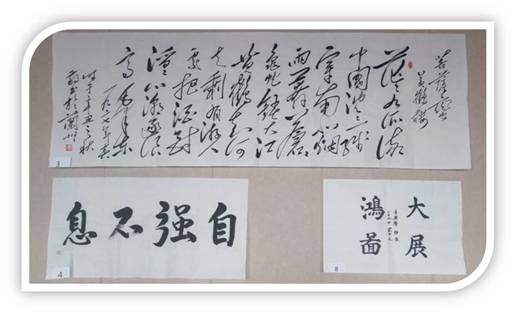 菩萨蛮
黄鹤楼
茫茫九派流
中国沉沉一线
穿南北烟
雨莽苍苍
龟蛇锁大江
黄鹤知何
去剩有游人
处把酒酹
滔滔心潮逐浪
高
一九二七年春
3
自强不息
4
大展
鸿图
8